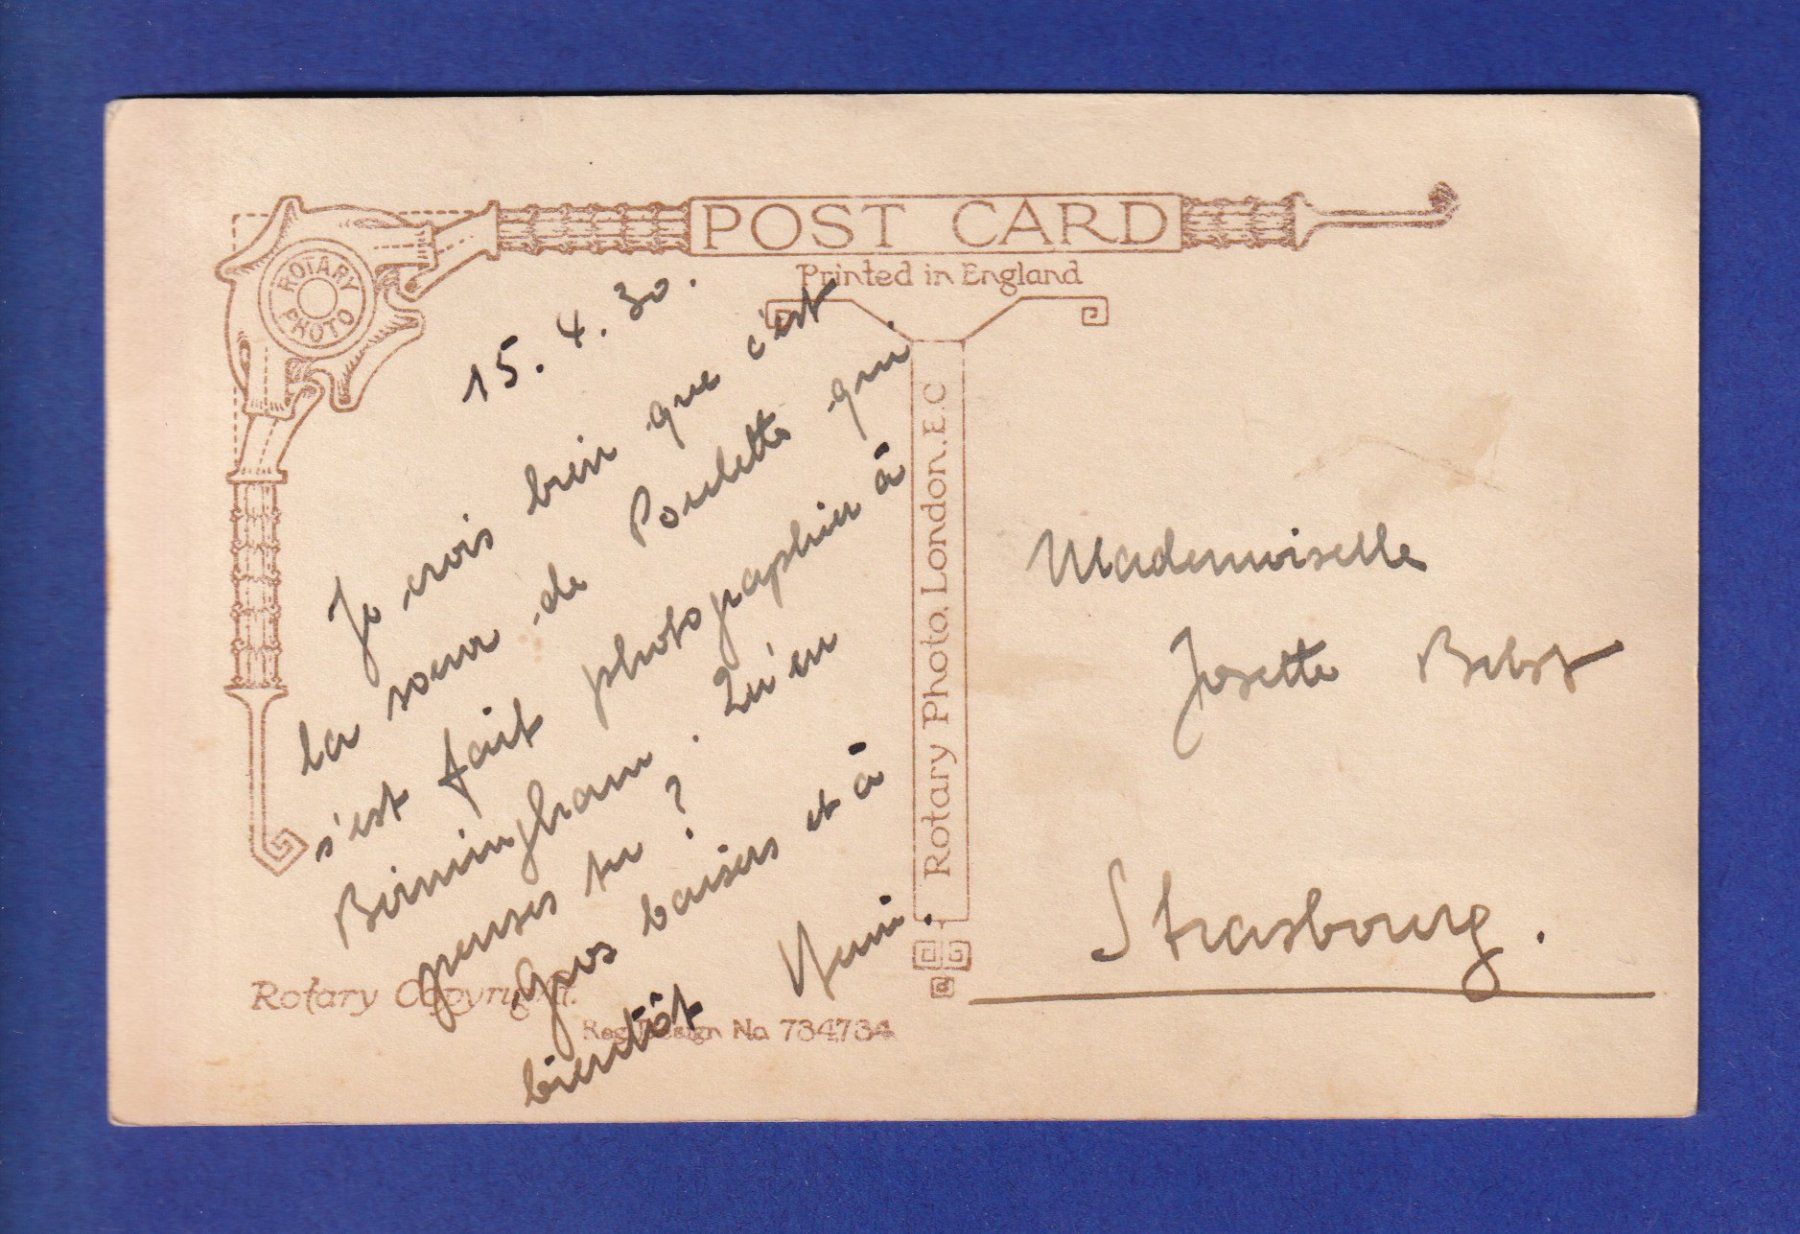 POST CARD
Printed in England
ROTARY PHOTO
15.4.30.
Je crois bien que c'est
la soeur de Poulette qui
s'est fait photographier à
Birmingham. Qu'en
penses tu ?
Gros baisers et à
bientôt
Rotary Photo. London. E.C
Rotary Copyright.
Reg. Design No 734734
Mademoiselle
Josette
Strasbourg.